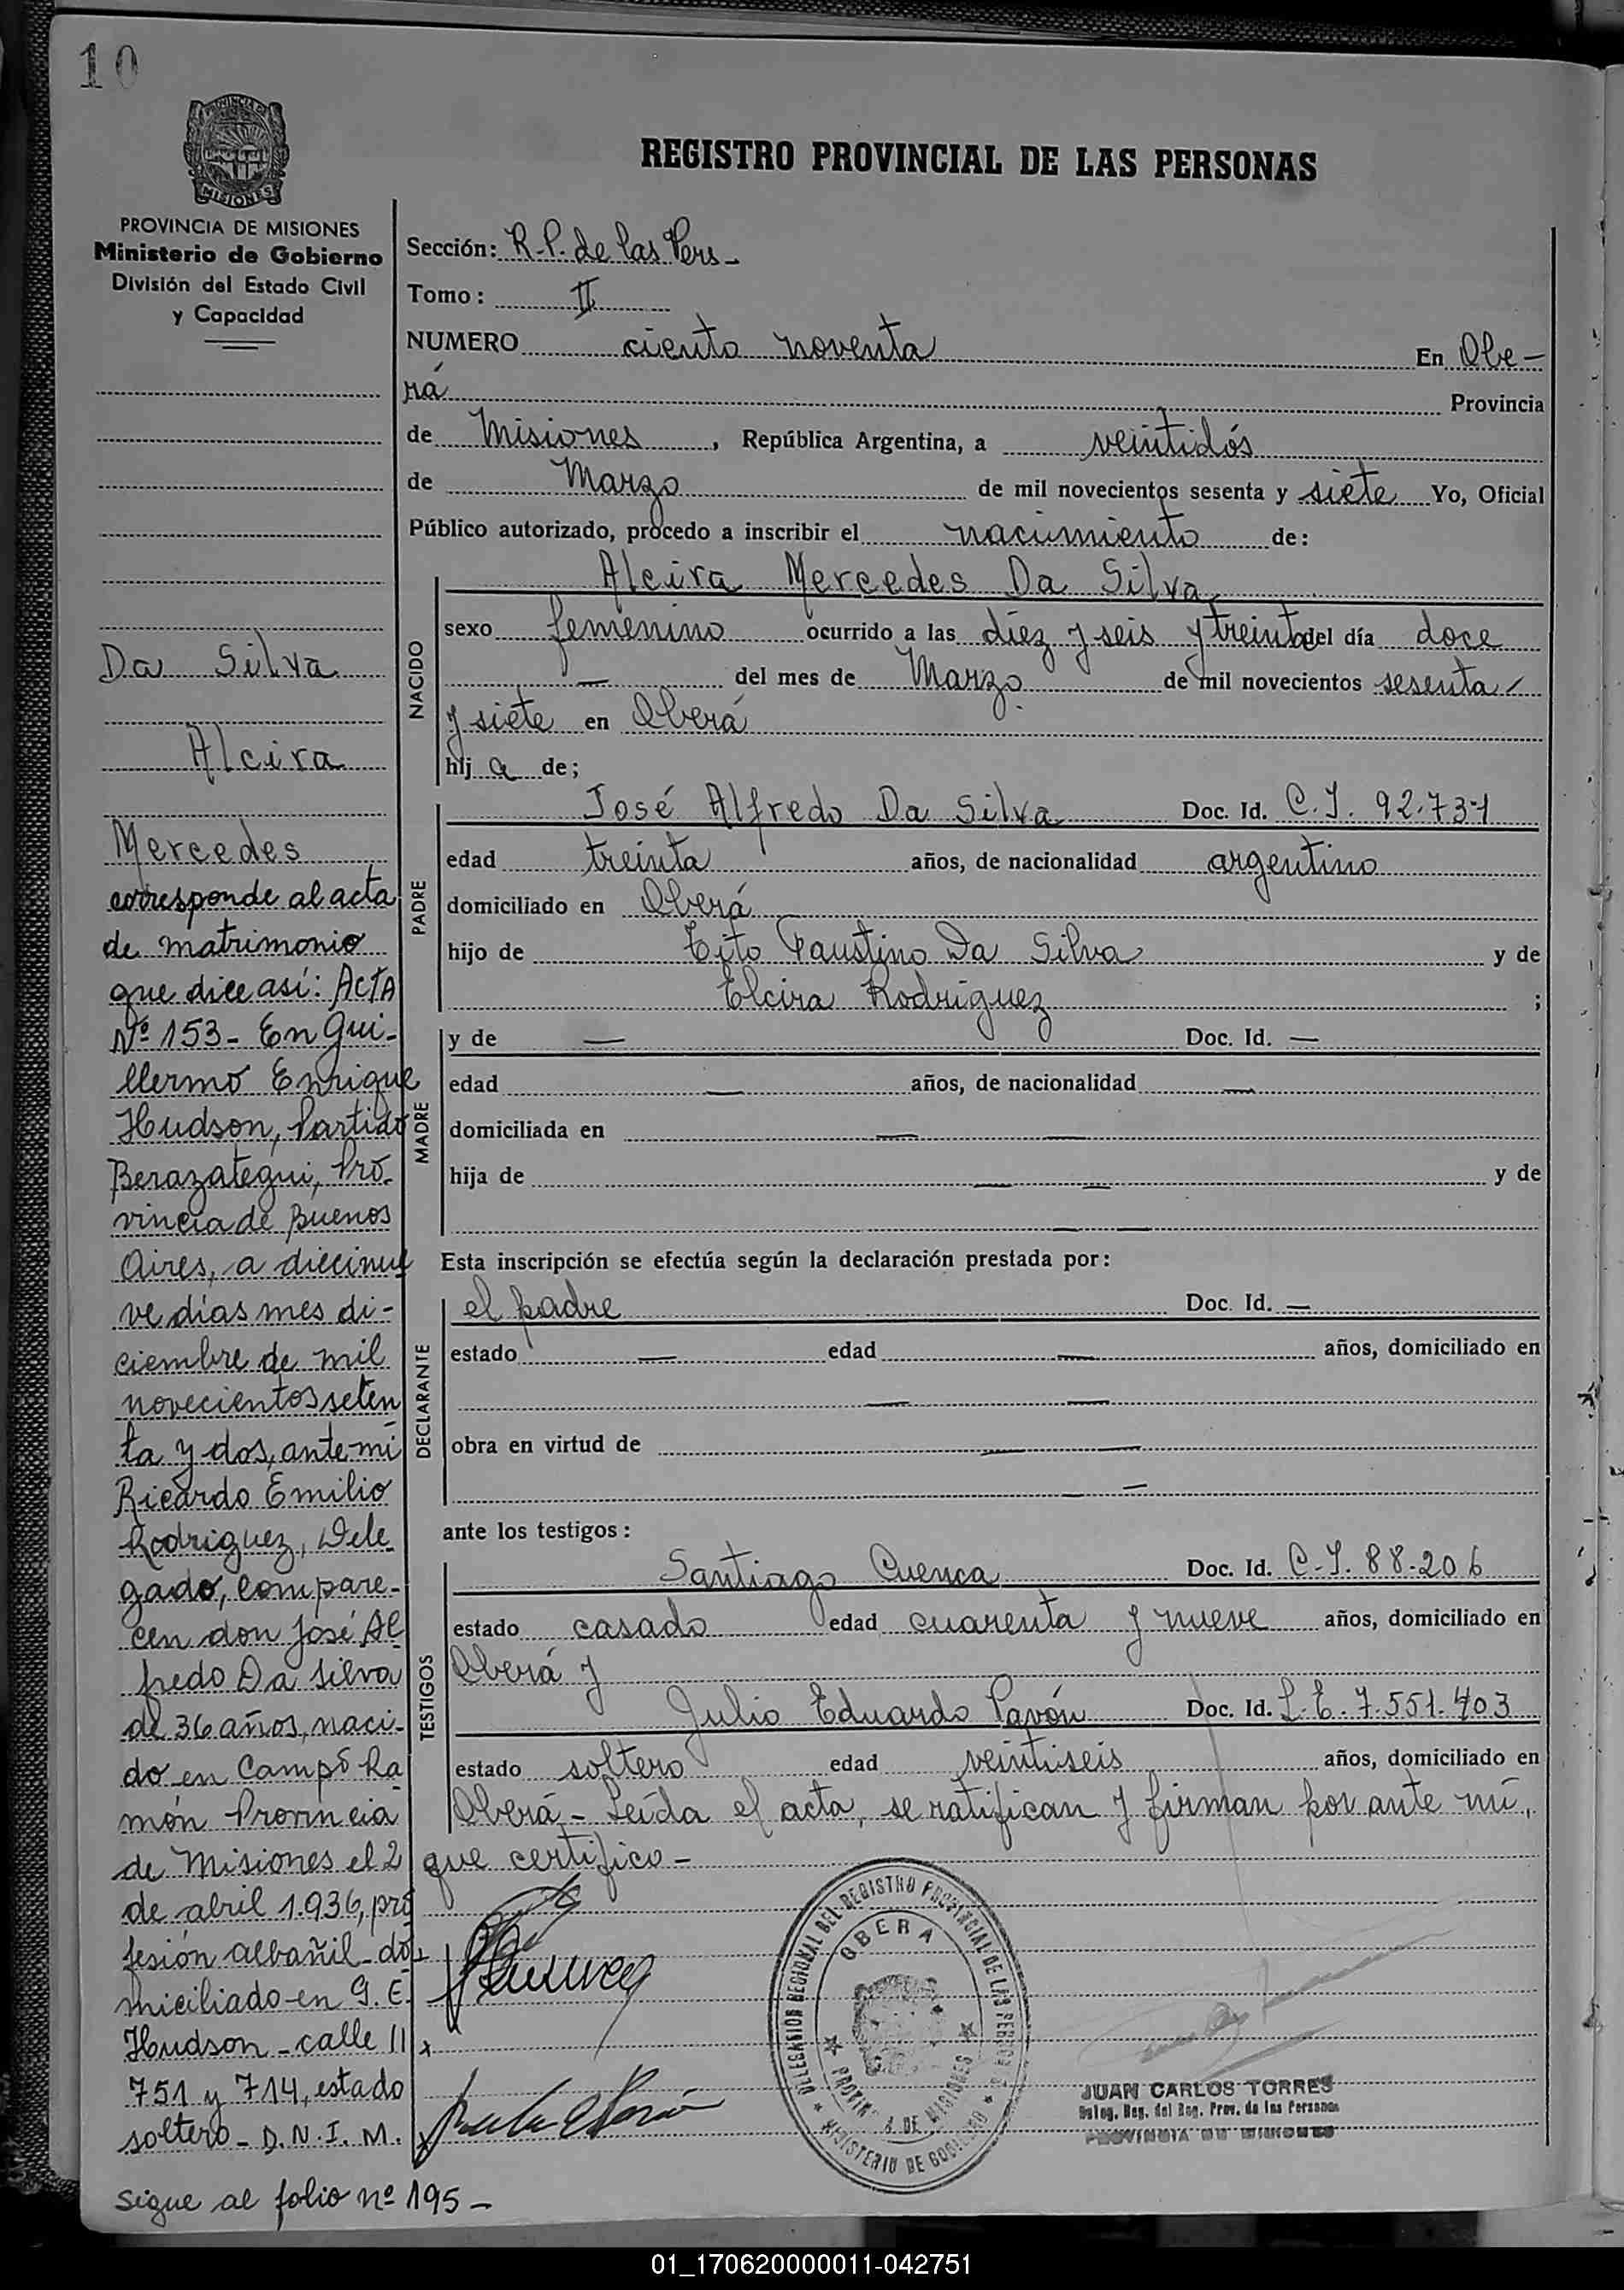 10
PROVINCIA DE
MISIONES
PROVINCIA DE MISIONES
Ministerio de Gobierno
División del Estado Civil
y Capacidad
Da Silva
Alcira
Mercedes
corresponde al acta
de matrimonio
que dice así: ACTA
Nº 153- En Gui-
llermo Enrique
Hudson, Partido
Berazategui, Pro-
vincia de Buenos
Aires, a diecinue
ve días mes di-
ciembre de mil
novecientos seten
ta y dos, ante mi
Ricardo Emilio
Rodriguez, Dele-
gado, compare-
cen don José Al
fredo Da Silva
de 36 años, naci-
do en Campo Ra
món Provincia
de Misiones el 2
de abril 1.936, pro
fesión albañil-do-
miciliado en G. E.
Hudson - calle 11
751 y 714, estado
soltero - D.N.I. M.
sigue al folio nº 195-
REGISTRO PROVINCIAL DE LAS PERSONAS
Sección: R.P. de las Pers-
Tomo: II
NUMERO ciento noventa En Obe-
rá Provincia
de Misiones, República Argentina, a veintidós
de Marzo de mil novecientos sesenta y siete Yo, Oficial
Público autorizado, procedo a inscribir el nacimiento de:
NACIDO
Alcira Mercedes Da Silva
sexo femenino ocurrido a las diez y seis y treinta del día doce
— del mes de Marzo de mil novecientos sesenta
y siete en Oberá
hij a de;
PADRE
José Alfredo Da Silva Doc. Id. C.I. 92.731
edad treinta años, de nacionalidad argentino
domiciliado en Oberá
hijo de Tito Faustino Da Silva y de
Elcira Rodriguez ;
MADRE
y de — Doc. Id. —
edad — años, de nacionalidad —
domiciliada en — —
hija de — — y de
— —
Esta inscripción se efectúa según la declaración prestada por:
DECLARANTE
el padre Doc. Id. —
estado — edad — años, domiciliado en
— —
obra en virtud de — —
— —
ante los testigos:
TESTIGOS
Santiago Cuenca Doc. Id. C.I. 88.206
estado casado edad cuarenta y nueve años, domiciliado en
Oberá y
Julio Eduardo Pavón Doc. Id. L.E. 7.551.403
estado soltero edad veintiseis años, domiciliado en
Oberá - Leída el acta, se ratifican y firman por ante mí,
que certifico-
DELEGACION REGIONAL DEL REGISTRO PROVINCIAL DE LAS PERSONAS
OBERA
PROVINCIA DE MISIONES
MINISTERIO DE GOBIERNO
JUAN CARLOS TORRES
Deleg. Reg. del Reg. Prov. de las Personas
PROVINCIA DE MISIONES
01_170620000011-042751